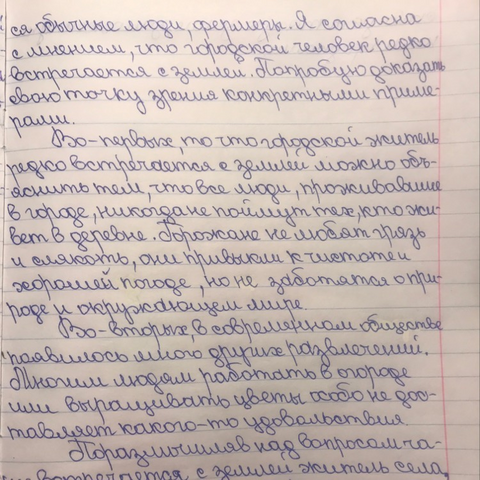 ся обычные люди, фермеры. Я согласна
с мнением, что городской человек редко
встречается с землей. Попробую доказать
свою точку зрения конкретными приме-
рами.
Во-первых, то что городской житель
редко встречается с землей можно объ-
яснить тем, что все люди, проживавшие
в городе, никогда не поймут тех, кто жи-
вет в деревне. Горожане не любят грязь
и слякоть, они привыкли к чистоте и
хорошей погоде, но не заботятся о при-
роде и окружающем мире.
Во-вторых, в современном обществе
появилось много других развлечений.
Многим людям работать в огороде
или выращивать цветы особо не дос-
тавляет какого-то удовольствия.
Поразмышляв над вопросом ча-
встречается с землей житель села,